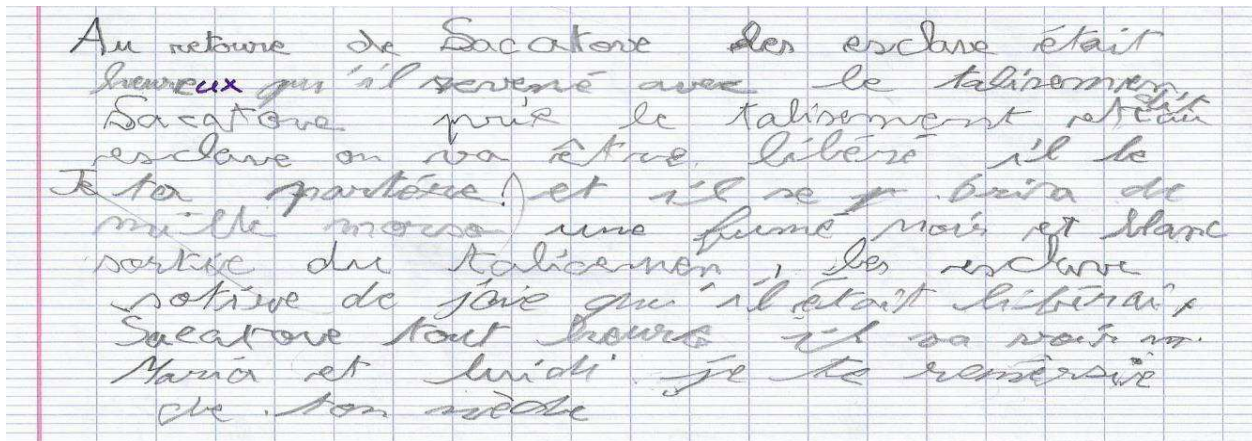 Au retoure de Sacatove les esclave était
heureux qu'il revené avec le talisemen,
Sacatove prie le talisement et dit au
esclave on va être libéré il le
Je ta partére!) et il se brisa de
mille morso une fumé noir et blanc
sortie du talicemen, les esclave
sotive de joie qu'il était libérai,
Sacatove tout heure il va voir
Maria et lui di je te remersie
de ton nède